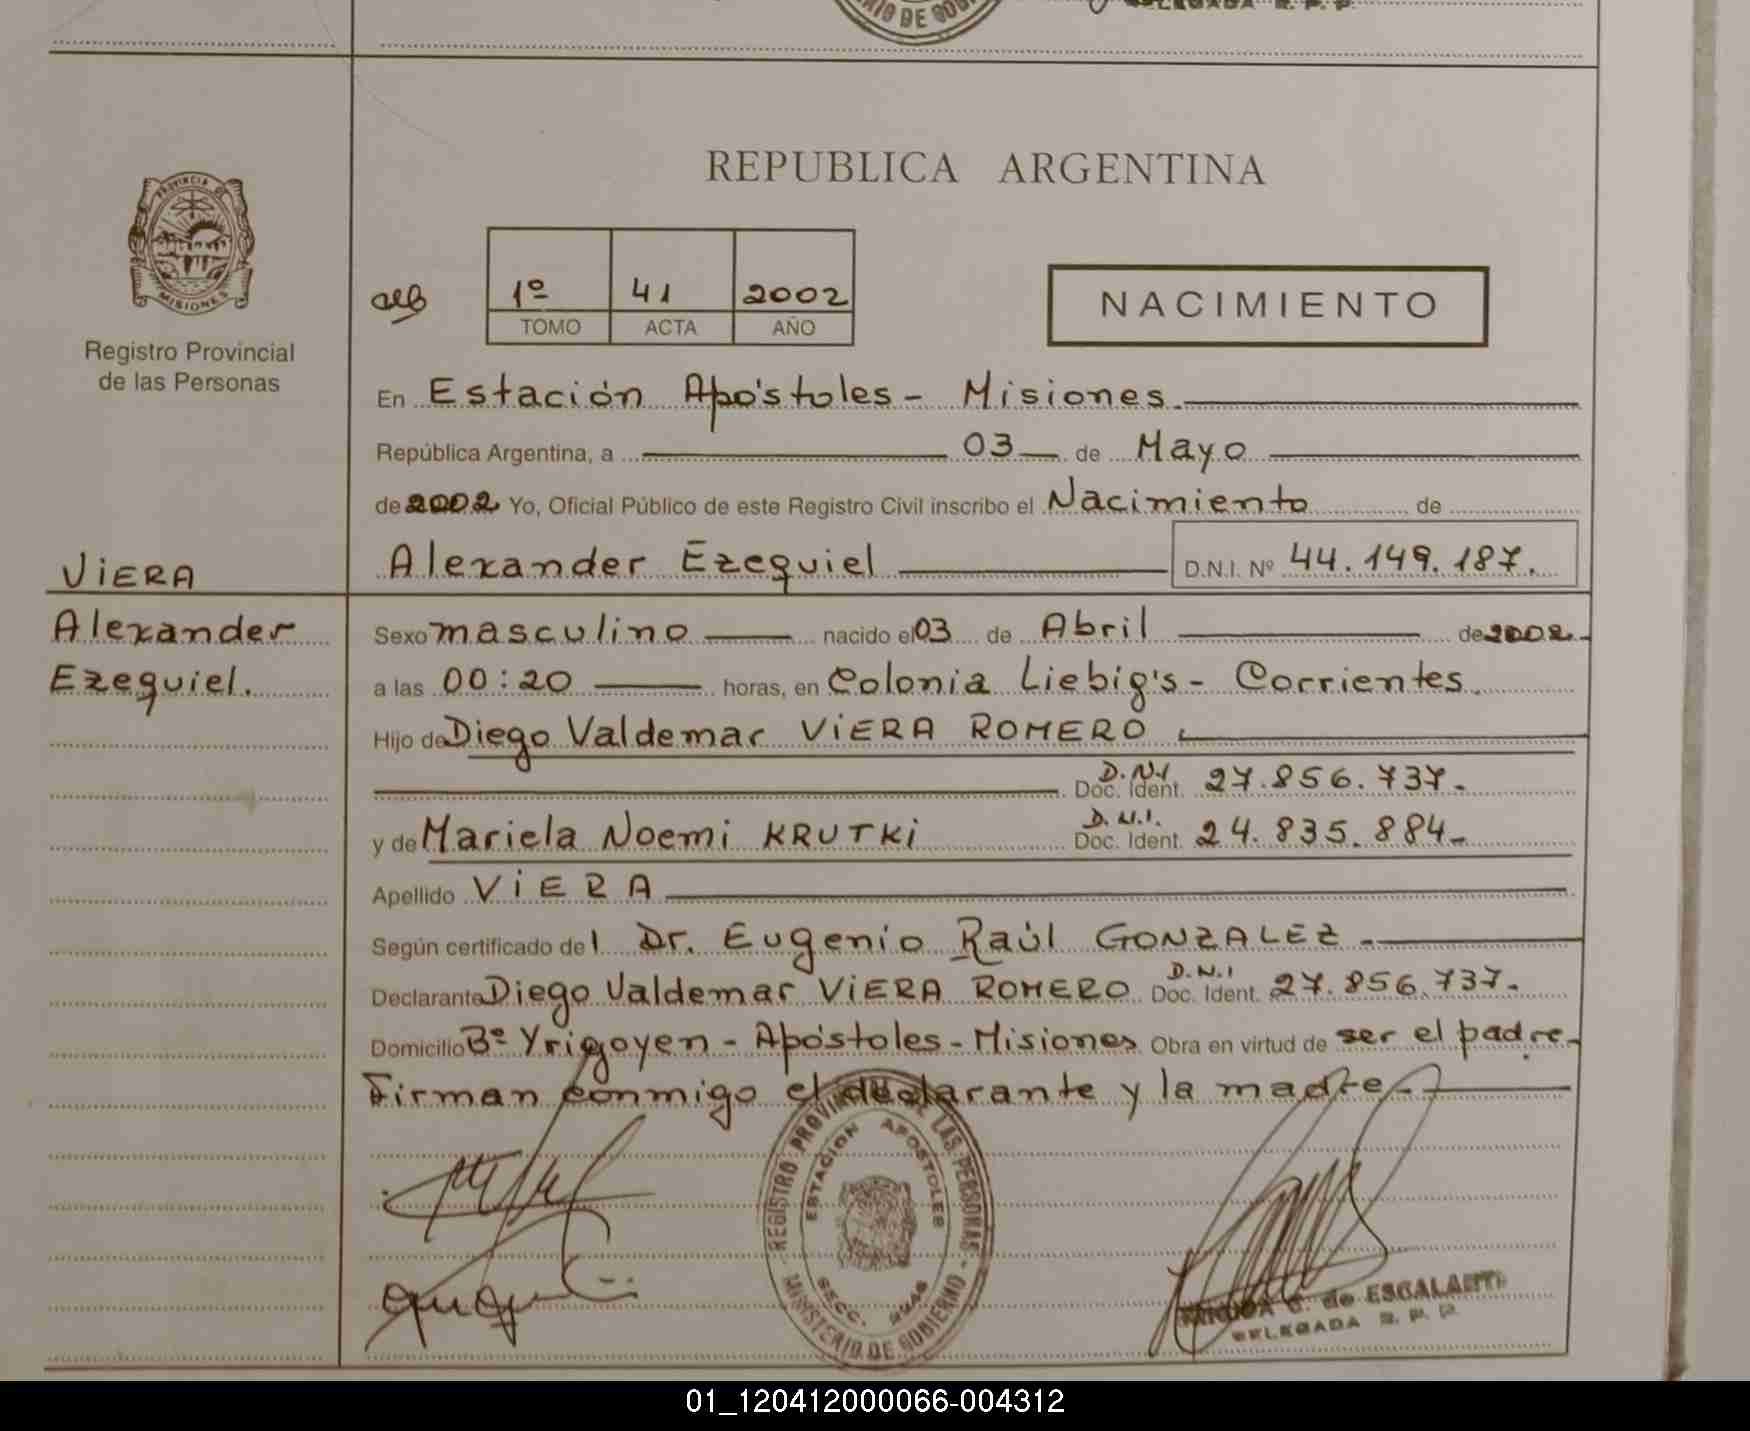 REPUBLICA ARGENTINA
PROVINCIA DE
MISIONES
Registro Provincial
de las Personas
1º 41 2002
TOMO ACTA AÑO
NACIMIENTO
En Estación Apóstoles - Misiones.
República Argentina, a 03 de Mayo
de 2002 Yo, Oficial Público de este Registro Civil inscribo el Nacimiento de
VIERA
Alexander Ezequiel D.N.I. Nº 44.149.187.
Alexander
Ezequiel.
Sexo masculino nacido el 03 de Abril de 2002
a las 00:20 horas, en Colonia Liebig's - Corrientes.
Hijo de Diego Valdemar VIERA ROMERO
D.N.I
Doc. Ident. 27.856.737.
D.N.I.
y de Mariela Noemi KRUTKI Doc. Ident. 24.835.884
Apellido VIERA
Según certificado del Dr. Eugenio Raúl GONZALEZ.
D.N.I
Declarante Diego Valdemar VIERA ROMERO Doc. Ident. 27.856.737.
Domicilio Bº Yrigoyen - Apóstoles - Misiones Obra en virtud de ser el padre.
Firman conmigo el declarante y la madre.
REGISTRO PROVINCIAL DE LAS PERSONAS - MINISTERIO DE GOBIERNO
ESTACION APOSTOLES
C. de ESCALANTE
DELEGADA R. P. P.
01_120412000066-004312